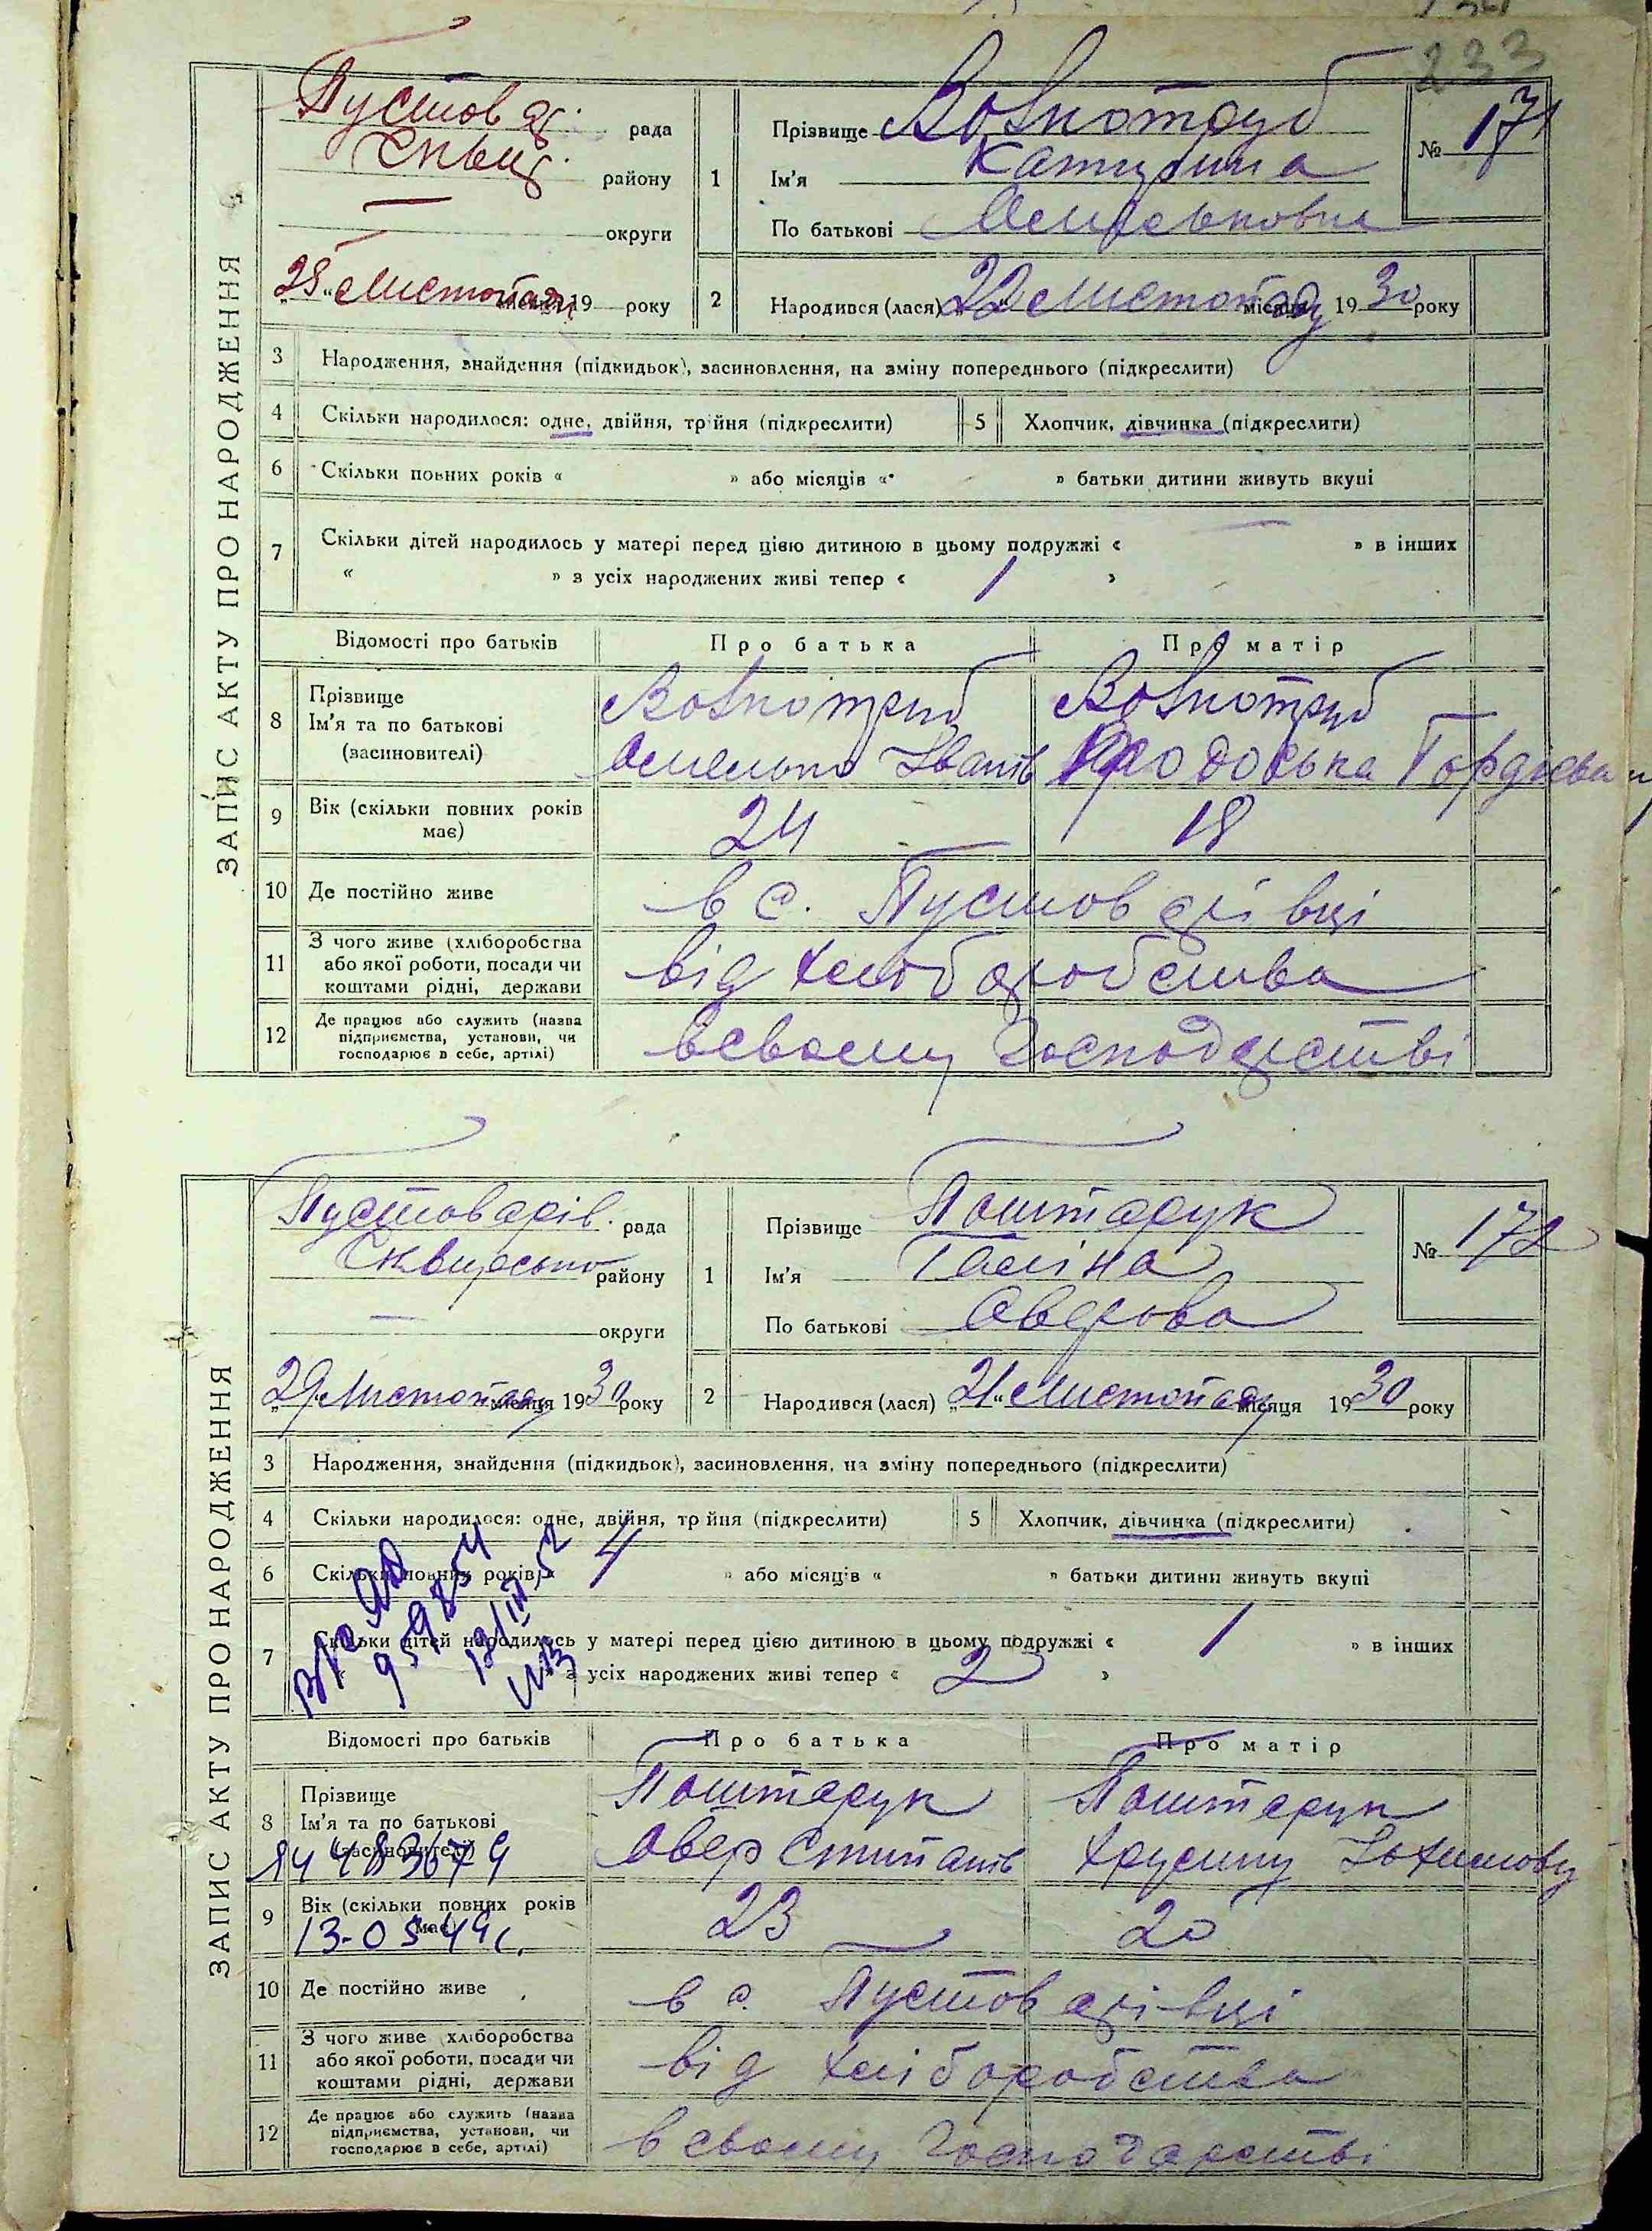 233
ЗАПИС АКТУ ПРО НАРОДЖЕННЯ
рада
району
округи
28 Листопада місяця 19 року
1
Прізвище Вовкотруб
Ім'я Катерина
По батькові
№ 171
2 Народився (лася) 22 Листопаду місяця 1930 року
3 Народження, знайдення (підкидьок), засиновлення, на зміну попереднього (підкреслити)
4 Скільки народилося: одне, двійня, трійня (підкреслити)
5 Хлопчик, дівчинка (підкреслити)
6 Скільки повних років « » або місяців « » батьки дитини живуть вкупі
7 Скільки дітей народилось у матері перед цією дитиною в цьому подружжі « — » в інших
« » з усіх народжених живі тепер « 1 »
Відомості про батьків Про батька Про матір
8 Прізвище Вовкотруб Вовкотруб
Ім'я та по батькові
(засиновителі) Омелько Іванів Гордієва
9 Вік (скільки повних років має) 24 18
10 Де постійно живе в с. Пустоварівці
11 З чого живе (хліборобства або якої роботи, посади чи коштами рідні, держави від хліборобства
12 Де працює або служить (назва підприємства, установи, чи господарює в себе, артілі) в своему Господарстві
ЗАПИС АКТУ ПРО НАРОДЖЕННЯ
Пустоварів. рада
Сквирсько району
— округи
29 Листопаду місяця 1930 року
1
Прізвище Поштарук
Ім'я Галіна
По батькові Оверова
№ 172
2 Народився (лася) „21“ Листопаду місяця 1930 року
3 Народження, знайдення (підкидьок), засиновлення, на зміну попереднього (підкреслити)
4 Скільки народилося: одне, двійня, трійня (підкреслити)
5 Хлопчик, дівчинка (підкреслити)
6 Скільки повних років « 4 » або місяців « » батьки дитини живуть вкупі
7 Скільки дітей народилось у матері перед цією дитиною в цьому подружжі « 1 » в інших
« » з усіх народжених живі тепер « 2 »
Відомості про батьків Про батька Про матір
8 Прізвище Поштарук Поштарук
Ім'я та по батькові
(засиновителі) Овер
9 Вік (скільки повних років має) 23 20
13-05-49
10 Де постійно живе в с. Пустоварівці
11 З чого живе (хліборобства або якої роботи, посади чи коштами рідні, держави від хліборобства
12 Де працює або служить (назва підприємства, установи, чи господарює в себе, артілі) в своему Господарстві